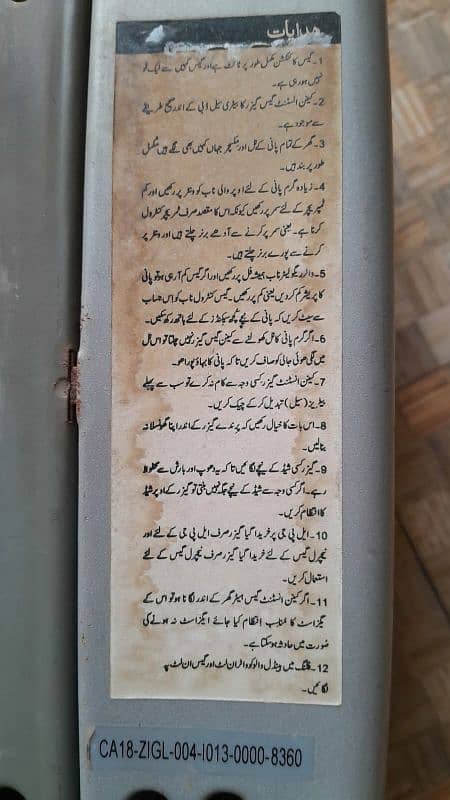 ہدایات
1- گیس کا کنکشن مکمل طور پر ٹائٹ ہے اور گیس کہیں سے لیک تو
نہیں ہو رہی ہے۔
2- کینن انسٹنٹ گیس گیزر کا بیٹری سیل ڈبی کے اندر صحیح طریقے
سے موجود ہے۔
3- گھر کے تمام پانی کے نل اور مکسچر جہاں کہیں بھی لگے ہیں مکمل
طور پر بند ہیں۔
4- زیادہ گرم پانی کے لئے اوپر والی ناب کو ونٹر پر رکھیں اور کم
ٹمپریچر کے لئے سمر پر رکھیں کیونکہ اس کا مقصد صرف ٹمپریچر کنٹرول
کرنا ہے۔ یعنی سمر پر کرنے سے آدھے برنر چلتے ہیں اور ونٹر پر
کرنے سے پورے برنر چلتے ہیں۔
5- واٹر ریگولیٹر ناب ہمیشہ فل پر رکھیں اور اگر گیس کم آ رہی ہو تو پانی
کا پریشر کم کر دیں یعنی کم پر رکھیں۔ گیس کنٹرول ناب کو اس حساب
سے سیٹ کریں کہ پانی کے نیچے کچھ سیکنڈز کے لئے ہاتھ رکھ سکیں۔
6- اگر گرم پانی کا نل کھولنے سے کینن گیس گیزر نہیں چلتا تو اس نل
میں لگی ھوئی جالی کو صاف کریں تا کہ پانی کا بہاؤ پورا ھو۔
7- کینن انسٹنٹ گیزر کسی وجہ سے کام نہ کرے تو سب سے پہلے
بیٹریز (سیل) تبدیل کر کے چیک کریں۔
8- اس بات کا خیال رکھیں کہ پرندے گیزر کے اندر اپنا گھونسلا نہ
بنالیں۔
9- گیزر کسی شیڈ کے نیچے لگائیں تا کہ یہ دھوپ اور بارش سے محفوظ
رہے۔ اگر کسی وجہ سے شیڈ کے نیچے جگہ نہیں بنتی تو گیزر کے اوپر شیڈ
کا انتظام کریں۔
10- ایل پی جی پر خریدا گیا گیزر صرف ایل پی جی کے لئے اور
نیچرل گیس کے لئے خریدا گیا گیزر صرف نیچرل گیس کے لئے
استعمال کریں۔
11- اگر کینن انسٹنٹ گیس ہیٹر گھر کے اندر لگانا ہو تو اس کے
ایگزاسٹ کا مناسب انتظام کیا جائے ایگزاسٹ نہ ہونے کی
صورت میں حادثہ ہو سکتا ہے۔
12- فٹنگ میں ہینڈل والو کو واٹر ان لٹ اور گیس ان لٹ پہ
لگائیں۔
CA18-ZIGL-004-I013-0000-8360